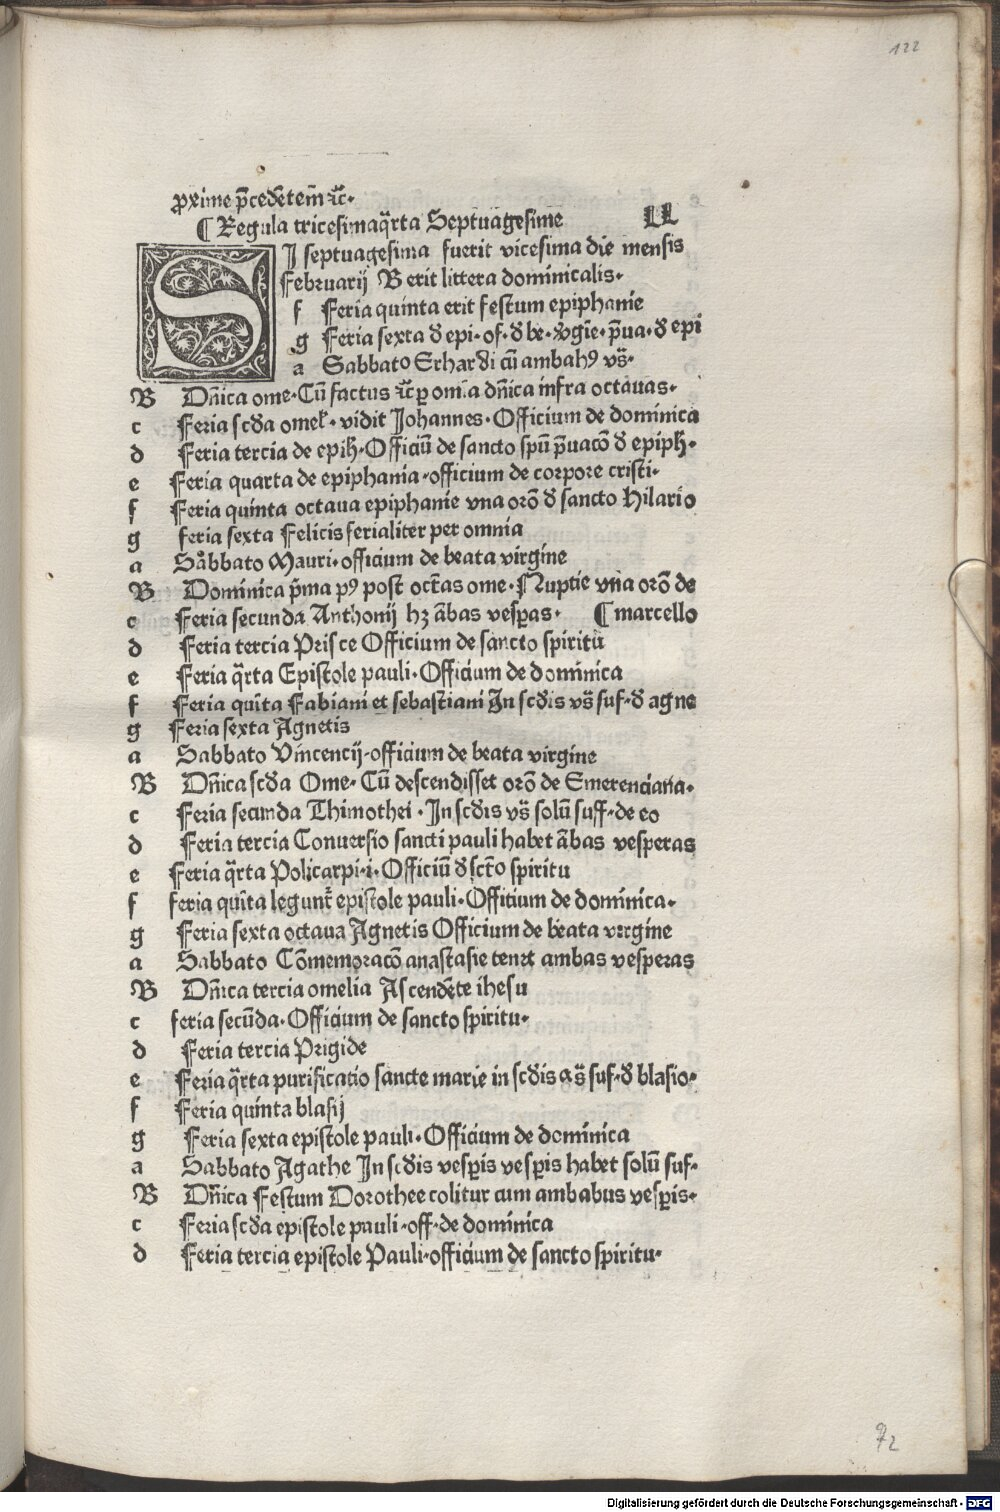 122
ꝓxime p̄cedētem̄ ⁊c̄.
¶ Regula tricesimaq̄rta Septuagesime LL
SI septuagesima fuerit vicesima die mensis
Februarij B erit littera dominicalis.
f Feria quinta erit festum epiphanie
g Feria sexta d̄ epi. of. d̄ be. v̄gie. p̄ua. d̄ epi
a Sabbato Erhardi cū ambahꝰ vs̄.
B Dn̄ica ome. Cū factus ⁊c̄ ꝑ om̄ia dn̄ica infra octauas.
c Feria scd̄a omel̄. vidit Johannes. Officium de dominica
d Feria tercia de epih̄. Officiū de sancto spū p̄uacō d̄ epiph̄.
e Feria quarta de epiphania. officium de corpore cristi.
f Feria quinta octaua epiphanie vna orō d̄ sancto Hilario
g feria sexta Felicis ferialiter per omnia
a Sabbato Mauri. officium de beata virgine
B Dominica p̄ma pꝰ post oct̄as ome. Nuptie vna orō de
c Feria secunda Anthonij hꝫ ābas vesꝑas. ¶ marcello
d Feria tercia Prisce Officium de sancto spiritu
e Feria q̄rta Epistole pauli. Officium de dominica
f Feria quīta Fabiani et sebastiani In scd̄is vs̄ suf. d̄ agne
g Feria sexta Agnetis
a Sabbato Vincencij. officium de beata virgine
B Dn̄ica scd̄a Ome. Cū descendisset orō de Emerenciana.
c Feria secunda Thimothei. In scd̄is vs̄ solū suff. de eo
d Feria tercia Conuersio sancti pauli habet ābas vesperas
e Feria q̄rta Policarpi. i. Officiū d̄ scto̅ spiritu
f feria quīta legunt̄ epistole pauli. Officium de dominica.
g Feria sexta octaua Agnetis Officium de beata virgine
a Sabbato Cōmemoracō anastasie tenet ambas vesperas
B Dn̄ica tercia omelia Ascendēte ihesu
c feria secūda. Officium de sancto spiritu.
d Feria tercia Prigide
e Feria q̄rta purificatio sancte marie in scd̄is vs̄ suf. d̄ blasio.
f Feria quinta blasij
g Feria sexta epistole pauli. Officium de dominica
a Sabbato Agathe In scd̄is vesꝑis vesꝑis habet solū suf.
B Dn̄ica Festum Dorothee colitur cum ambabus vesꝑis.
c Feria scd̄a epistole pauli. off. de dominica
d Feria tercia epistole Pauli. officium de sancto spiritu.
72
Digitalisierung gefördert durch die Deutsche Forschungsgemeinschaft - DFG